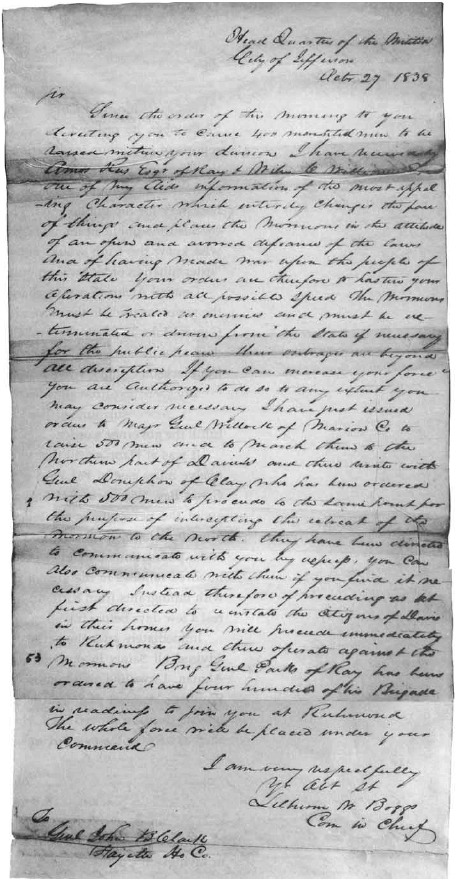 Head Quarters of the Militia
City of Jefferson
Octr 27 1838
Sir
Since the order of this morning to you
directing you to cause 400 mounted men to be
raised within your division I have received by
Amos Rees Esqr of Ray & Wiley C Williams
one of my Aids information of the most appal
-ing Character which entirely changes the face
of things and places the Mormons in the attitude
of an open and avowed defiance of the laws
and of having made war upon the people of
this State Your orders are therefore to hasten your
operations with all possible speed The Mormons
must be treated as enemies and must be ex-
-terminated or driven from the State if necessary
for the public peace Their outrages are beyond
all description If you can increase your force
you are Authorized to do so to any extent you
may consider necessary I have just issued
orders to Majr Genl Wollock of Marion Co to
raise 500 men and to march them to the
Northern part of Daviess and there unite with
Genl Doniphan of Clay who has been ordered
with 500 men to proceede to the same point for
the purpose of intercepting the retreat of the
Mormon to the North. They have been directed
to communicate with you by express, you can
also communicate with them if you find it ne
cessary Instead therefore of proceeding as at
first directed to reinstate the Citizens of Daviess
in their homes you will proceede immediately
to Richmond and there operate against the
53
Mormons Brig Genl Parks of Ray has been
ordered to have four hundred of his Brigade
in readiness to join you at Richmond
The whole force will be placed under your
Command
I am very respectfully
Yr obt St
Lilburn W Boggs
Com in Chief
To
Genl John B Clark
Fayette Ho Co.